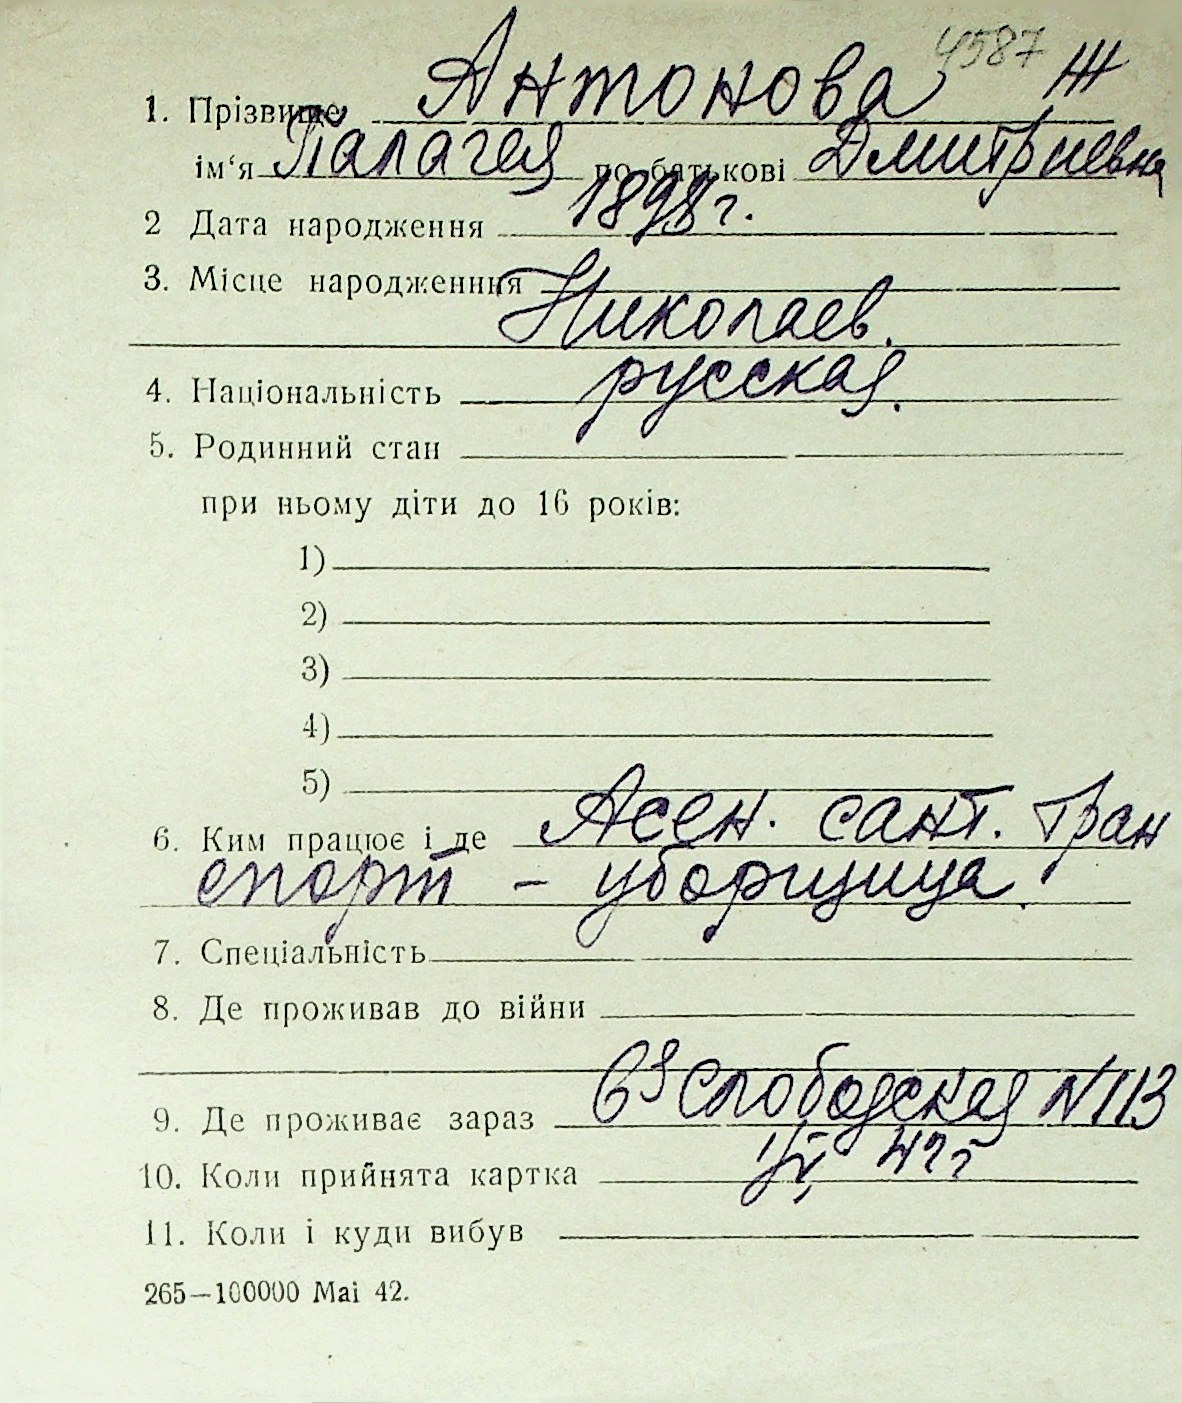 4587 Ж
1. Прізвище Антонова
ім‘я Палагея по-батькові Дмитриевна
2 Дата народження 1898 г.
3. Місце народженння
Николаев.
4. Національність русская.
5. Родинний стан
при ньому діти до 16 років:
1)
2)
3)
4)
5)
6. Ким працює і де Асен. сант. Тран
спорт – уборщица.
7. Спеціальність
8. Де проживав до війни
9. Де проживає зараз Слободская N 113
10. Коли прийнята картка 42 г
11. Коли і куди вибув
265—100000 Mai 42.